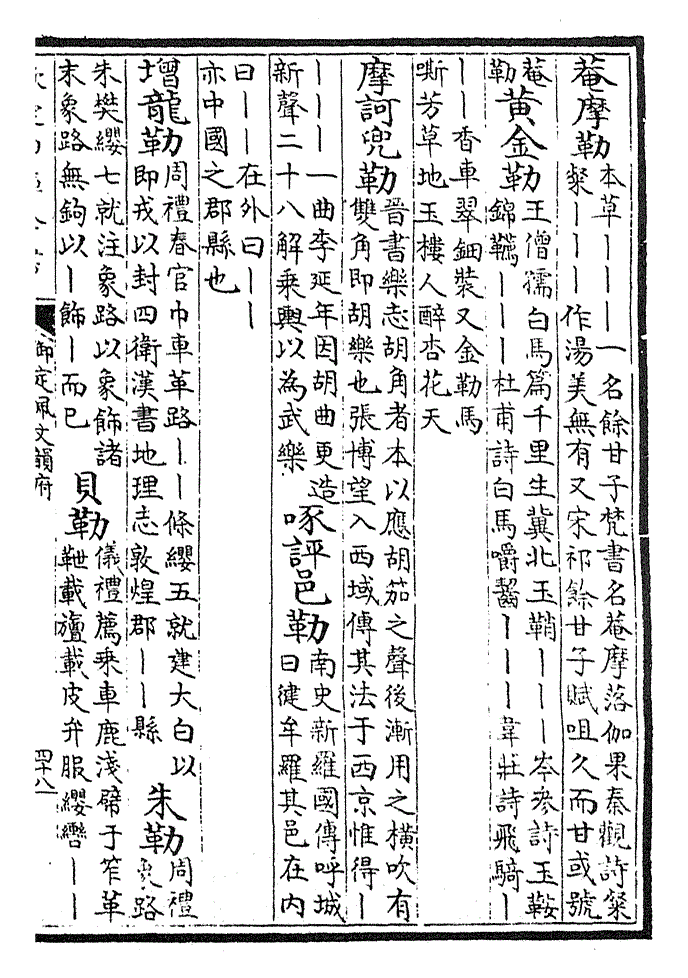 菴摩勒
本草｜｜｜一名餘甘子梵書名菴摩落伽果秦觀詩粲
粲｜｜｜作湯美無有又宋祁餘甘子賦咀久而甘或號
菴摩
勒
黃金勒
王僧孺白馬篇千里生冀北玉鞘｜｜｜岑參詩玉鞍
錦韉｜｜｜杜甫詩白馬嚼齧｜｜｜韋莊詩飛騎｜
｜｜香車翠鈿裝又金勒馬
嘶芳草地玉樓人醉杏花天
摩訶兜勒
晉書樂志胡角者本以應胡茄之聲後漸用之橫吹有
雙角即胡樂也張博望入西域傳其法于西京惟得｜
｜｜｜一曲李延年因胡曲更造
新聲二十八解乘輿以為武樂
啄評邑勒
南史新羅國傳呼城
曰徤牟羅其邑在內
曰｜｜在外曰｜｜
亦中國之郡縣也
增龍勒
周禮春官巾車革路｜｜條纓五就建大白以
即戎以封四衛漢書地理志敦煌郡｜｜縣
朱勒
周禮
象路
朱樊纓七就注象路以象飾諸
末象路無鉤以｜飾｜而已
貝勒
儀禮薦乘車鹿淺幦于笮革
靾載旜載皮弁服纓轡｜｜
御定佩文韻府
四十八